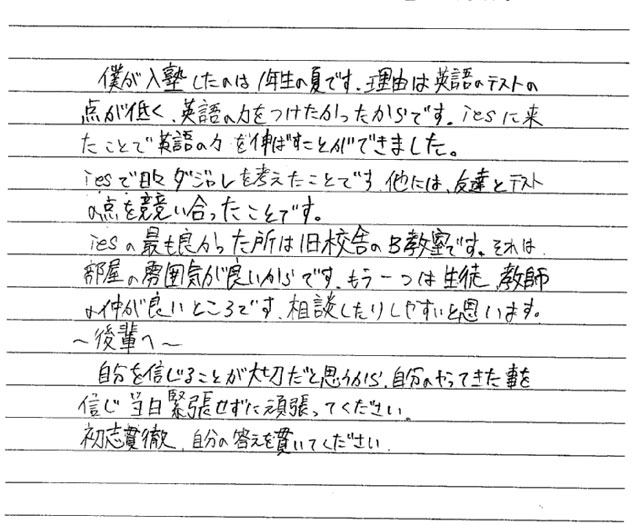 僕が入塾したのは1年生の夏です。理由は英語のテストの
点が低く、英語の力をつけたかったからです。iesに来
たことで英語の力を伸ばすことができました。
iesで日々ダジャレを考えたことです。他には、友達とテスト
の点を競い合ったことです。
iesの最も良かった所は旧校舎のB教室です。それは、
部屋の雰囲気が良いからです。もう一つは生徒、教師
の仲が良いところです。相談したりしやすいと思います。
〜後輩へ〜
自分を信じることが大切だと思うから、自分のやってきた事を
信じ当日緊張せずに頑張ってください。
初志貫徹、自分の答えを貫いてください。